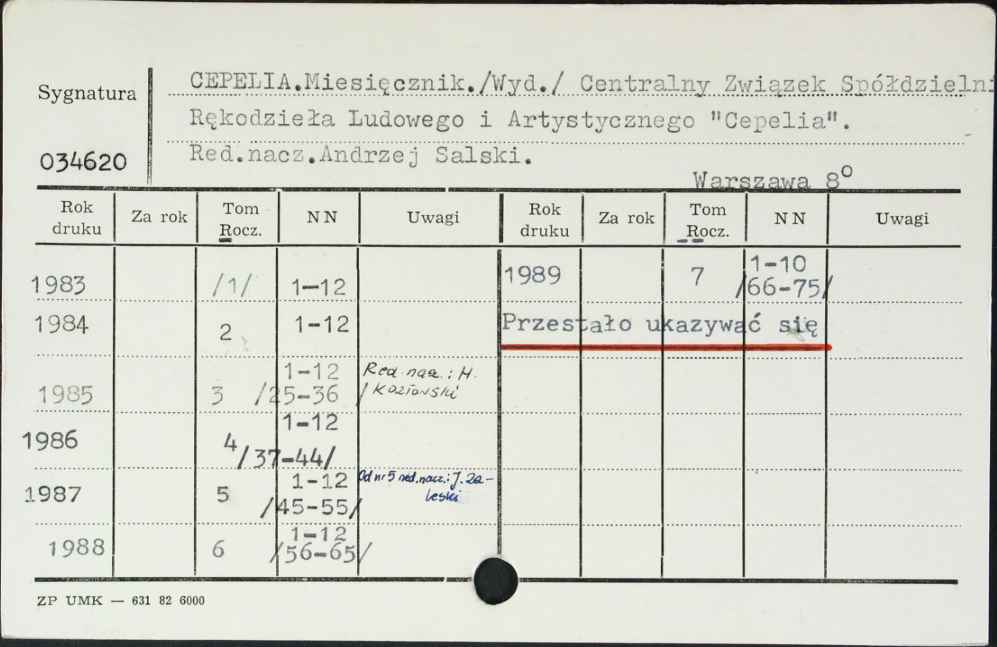 CEPELIA.Miesięcznik./Wyd./ Centralny Związek Spółdzielni
Sygnatura
Rękodzieła Ludowego i Artystycznego "Cepelia".
034620
Red.nacz.Andrzej Salski.
Warszawa 8⁰
Rok druku Za rok Tom Rocz. NN Uwagi Rok druku Za rok Tom Rocz. NN Uwagi
1983 /1/ 1-12
1984 2 1-12
1985 3 1-12 /25-36/ Red. nacz.: H. Koziarski
1986 4 1-12 /37-44/
1987 5 1-12 /45-55/ Od nr 5 red. nacz.: J. Zaleski
1988 6 1-12 /56-65/
1989 7 1-10 /66-75/
Przestało ukazywać się
ZP UMK — 631 82 6000